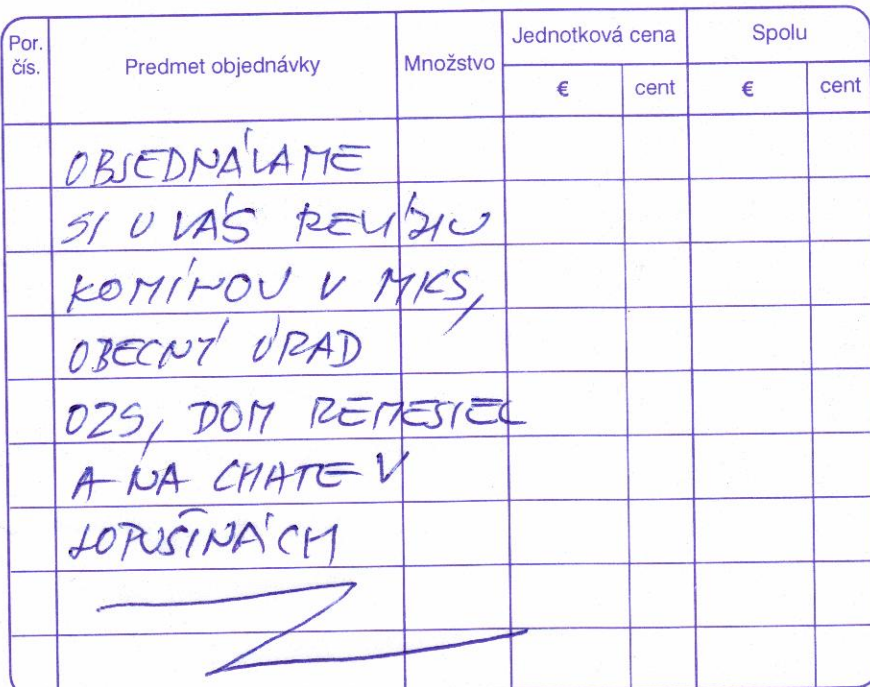 Por. čís. Predmet objednávky Množstvo Jednotková cena Spolu
€ cent € cent
OBJEDNÁVAME
SI U VÁS REVÍZIU
KOMÍNOV V MKS,
OBECNÝ ÚRAD
OZS, DOM REMESIEL
A NA CHATE V
LOPUŠINÁCH